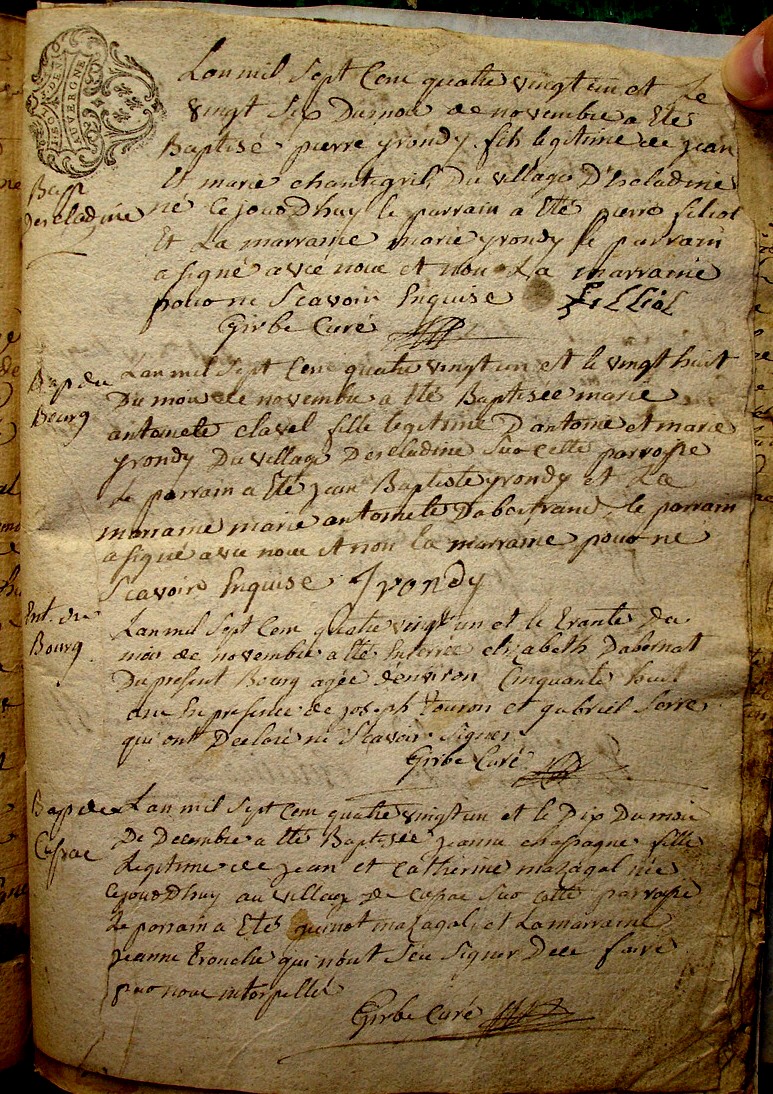 GEN DE RIOM
AUVERGNE
Lan mil Sept Cent quatre vingt un et Le
vingt Six Du mois de novembre a Eté
Baptisé pierre yrondy fils legitime de jean
Et marie chantegril, Du village D'Escladine
né Cejourdhuy le parrain a Eté pierre filiol
Et La marraine marie yrondy le parrain
a signé avec nous et non La marraine
pour ne Scavoir Enquise Filliol
Girbe Curé
Bap
Descladine
Bap du
Bourg
Lan mil Sept Cent quatre vingt un et le vingt huit
Du mois de novembre a Eté Baptisée marie
antoinete clavel fille legitime D'antoine et marie
yrondy Du village Descladine Sur Cette parroisse
Le parrain a Eté jean Baptiste yrondy et La
marraine marie antoinete Dabertrand, le parrain
a signé avec nous et non la marraine pour ne
Scavoir Enquise Yrondy
Ent. du
Bourg
Lan mil Sept Cent quatre vingt un et le trante du
mois de novembre a Eté Enterrée elizabeth Dabernat
Du present Bourg agée d'environ Cinquante huit
ans En presence de joseph Touron et gabriel Serre
qui ont Declaré ne Scavoir Signer
Girbe Curé
Bap de
Cussac
Lan mil Sept Cent quatre vingt un et le Dix Du mois
De Decembre a Eté Baptisée jeanne chassagne fille
Legitime de jean et Catherine mazagal née
cejourdhuy au village De Cussac Sur cette parroisse
Le parrain a Eté guinot mazagal, et La marraine
jeanne qui n'ont Sçu Signer De ce faire
par nous interpellés
Girbe Curé